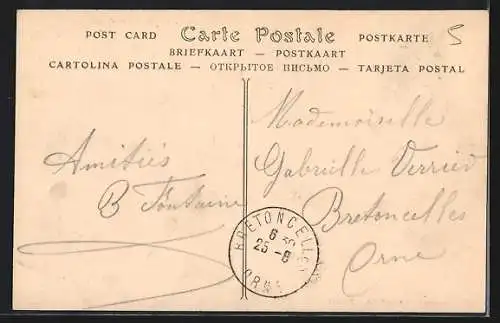 POST CARD Carte Postale POSTKARTE 5
BRIEFKAART — POSTKAART
CARTOLINA POSTALE — ОТКРЫТОЕ ПИСЬМО — TARJETA POSTAL
Amitiés
B Fontaine
Mademoiselle
Gabrielle Verrier
Bretoncelles
Orne
BRETONCELLES
6 30
25 - 8
ORNE